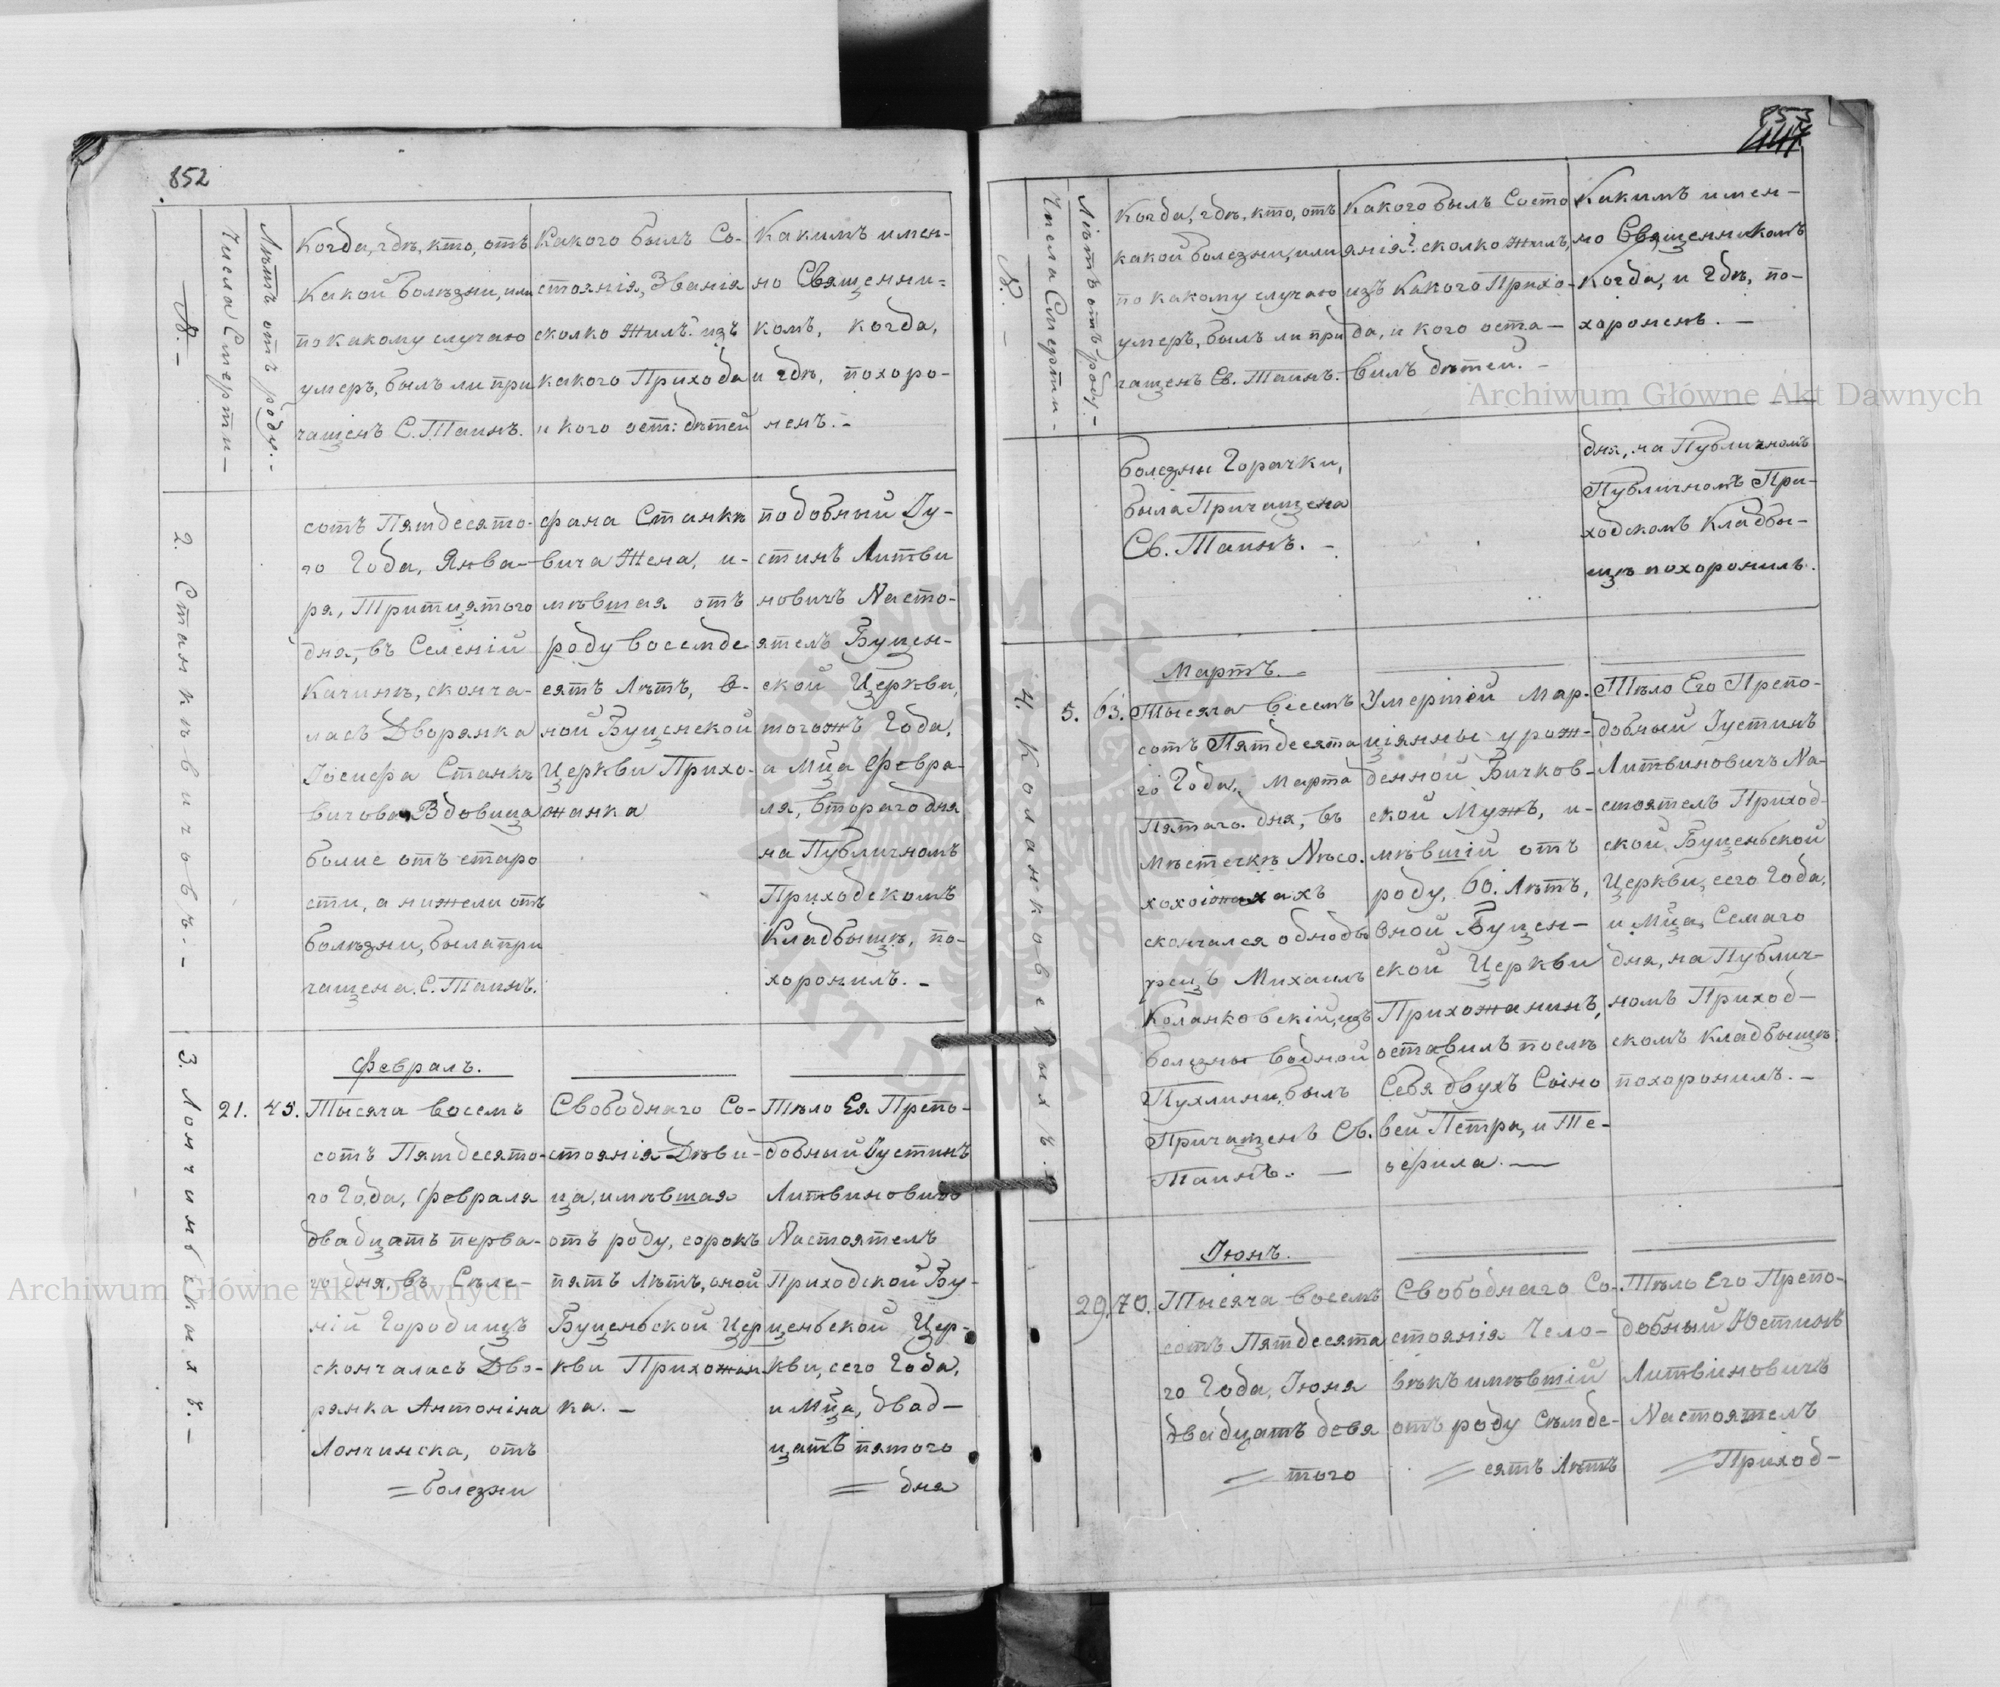 852
№. –
Числа Смерти –
Лѣтъ отъ роду. –
Когда, гдѣ, кто, отъ
Какой болѣзни, или
по какому случаю
умеръ, былъ ли при
чащенъ С. Таинъ.
Какого былъ Со-
стоянія, Званія
сколко жилъ? изъ
какого Прихода
и кого ост: дѣтей
Какимъ имен-
но Священни=
комъ, когда,
и гдѣ, похоро-
ненъ. –
2. Станкѣвичовъ. –
сотъ Пятдесято-
го Года, Янва-
ря, Тритцятого
дня, въ Селеній
Качинѣ, сконча-
лась Дворянка
Іосифа Станкѣ
вичова, Вдовица
болие отъ старо
сти, а нижели отъ
болѣзни, была при
чащена. С. Таинъ.
фана Станкѣ
вича Жена, и-
мѣвшая отъ
роду восемде
сятъ Лѣтъ, о-
ной Буценской
Церкви Прихо-
жанка
подобный Іу-
стинъ Литви
новичъ Насто-
ятель Буцен-
ской Церкви,
тогожъ Года,
а Мца Февра-
ля, втораго дня
на Публичномъ
Приходскомъ
Кладвыщѣ, по-
хоронилъ. –
3. Лончинская. –
21.
45.
Февралъ.
Тысяча восемъ
сотъ Пятдесято-
го Года, Февраля
двадцать перва-
го дня, въ Сѣле-
ній Городищѣ
скончалась Дво-
рянка Антоніна
Лончинска, отъ
= болезни
Свободнаго Со-
стоянія Дѣви-
ца, имѣвшая
отъ роду, сорокъ
пять Лѣтъ, оной
Буценьской Цер
кви Прихожан
ка. –
Тѣло Ея Препо-
добный Іустинъ
Литвиновичъ
Настоятель
Приходской Бу-
ценьской Цер-
кви, сего Года,
и Мца, двад-
цать пятого
= дня
853
№. –
Числа Смерти –
Лѣтъ отъ роду. –
Когда, гдѣ, кто, отъ
какой болезни, или
по какому случаю
умеръ, былъ ли при
чащенъ Св. Таинъ. –
Какого былъ Състо
янія? сколко жилъ,
изъ какого Прихо-
да, и кого оста –
вилъ дѣтей. –
Какимъ имен-
но Священникомъ
Когда, и Гдѣ, по-
хороненъ. –
болезны Горачки,
была Причащена
Св. Таинъ. –
дня, на Публичномъ
Публичномъ При-
ходскомъ Кладвы-
щѣ похоронилъ.
5.
63.
Мартъ.
Тысяча восемъ
сотъ Пятдесята
го Года, Марта
Пятаго дня, въ
Мѣстечкѣ
скончался однодво
рецъ Михаилъ
Коланковскій, изъ
болезны водной
Пухлини, былъ
Причащенъ Св.
Таинъ. –
Умерший Мар-
ціянны урож-
денной Бичков-
ской Мужъ, и-
мѣвшій отъ
роду, 60. Лѣтъ,
Оной Буцен-
ской Церкви
Прихожанинъ,
оставилъ послѣ
Себя двухъ Сыно
вей Петра, и Те-
офила. –
Тѣло Его Препо-
добный Іустинъ
Литвиновичъ На-
стоятель Приход-
ской Буценьской
Церкви, сего Года,
и Мца, Семаго
дня, на Публич-
номъ Приход-
скомъ Кладвыщѣ
похоронилъ. –
29.
70.
Іюнъ.
Тысяча восемъ
сотъ Пятдесята
го Года, Іюня
двадцать девя
= того
Свободнаго Со-
стоянія Чело-
вѣкъ имѣвшій
отъ роду Сѣмде-
= сятъ Лѣтъ
Тѣло Его Препо-
добный Юстинъ
Литвиновичъ
Настоятель
= Приход-
Archiwum Główne Akt Dawnych
Archiwum Główne Akt Dawnych